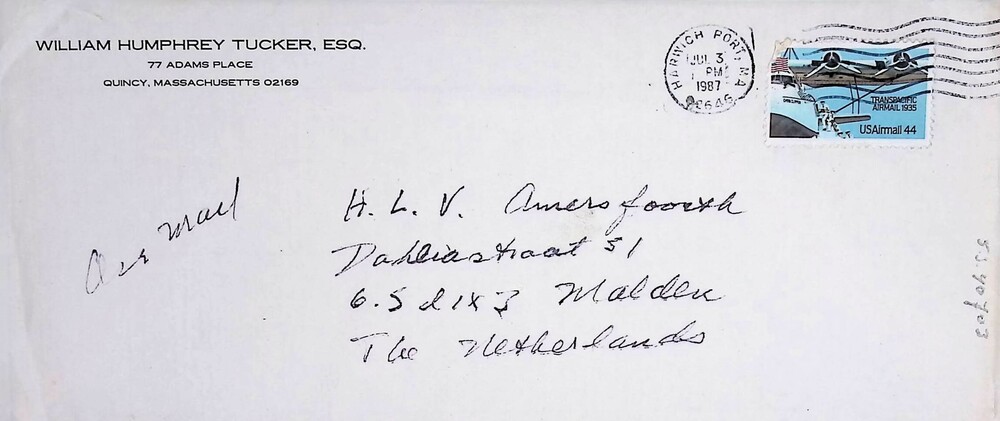 WILLIAM HUMPHREY TUCKER, ESQ.
77 ADAMS PLACE
QUINCY, MASSACHUSETTS 02169
HARWICH PORT, MA
JUL 3
PM
1987
02646
TRANSPACIFIC
AIRMAIL 1935
USAirmail 44
Air Mail
H. L. V. Amersfoorth
Dahliastraat 51
Malden
The Netherlands